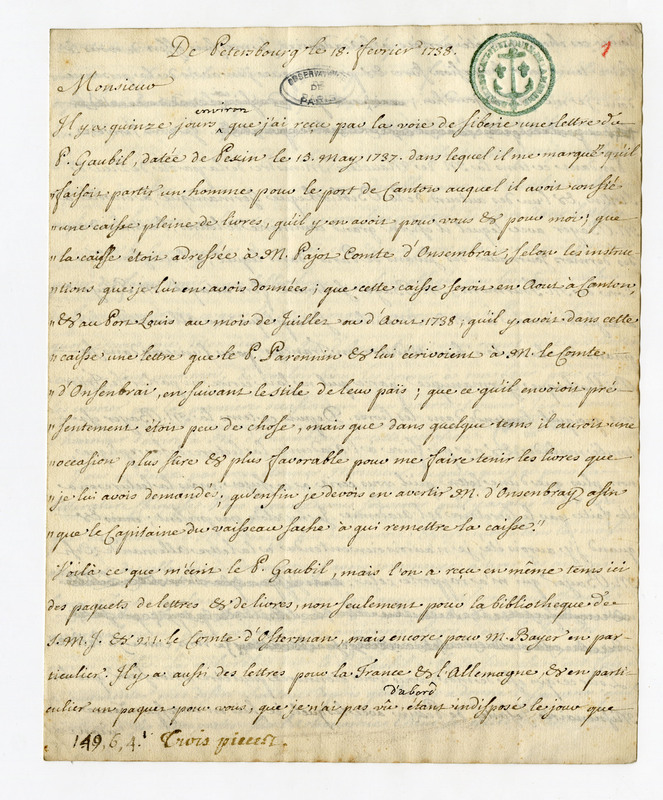 De Petersbourg le 18. fevrier 1738.
1
OBSERVATOIRE
DE
PARIS
Monsieur
environ
Il y a quinze jours que j'ai reçu par la voie de Siberie une lettre du
P. Gaubil, datée de Pekin le 13. May 1737. dans lequel il me marque "qu'il
"faisoit partir un homme pour le port de Canton auquel il avoit confié
"une caisse pleine de livres, qu'il y en avoit pour vous & pour moi; que
"la caisse étoit adressée à M. Pajot Comte d'Onsembrai, selon les instruc-
"tions que je lui en avois données; que cette caisse seroit en Aout à Canton,
"& au Port Louis au mois de Juillet ou d'Aout 1738; qu'il y avoit dans cette
"caisse une lettre que le P. Parennin & lui écrivoient à M. le Comte
"d'Onsenbrai, en suivant le stile de leur païs; que ce qu'il envoioit pré-
"sentement étoit peu de chose, mais que dans quelque tems il auroit une
"occasion plus sûre & plus favorable pour me faire tenir les livres que
"je lui avois demandés; qu'enfin je devois en avertir M. d'Onsenbray afin
"que le Capitaine du vaisseau sache à qui remettre la caisse."
Voilà ce que m'écrit le P. Gaubil, mais l'on a reçu en même tems ici
des paquets de lettres & de livres, non seulement pour la bibliotheque de
S. M. J. & le Comte d'Osterman, mais encore pour M. Bayer en par-
ticulier. Il y a aussi des lettres pour la France & l'Allemagne, & en parti-
d'abord
culier un paquet pour vous, que je n'ai pas vû, etant indisposé le jour que
149, 6, 4. Trois pieces.